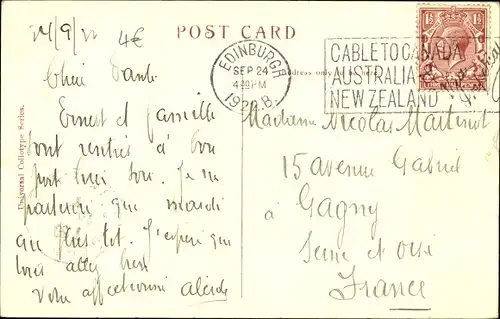 24/9/22 4€
POST CARD
EDINBURGH
SEP 24
4 PM
192
B.
CABLE TO CANADA
AUSTRALIA &
NEW ZEALAND
1½ 1½
Address only
Universal Collotype Series.
Chère Tante
Ernest et famille
sont rentrés à bon
port hier soir. Je ne
partirai que mardi
au plus tôt. J'espère que
vous allez bien
Votre affectionné Alcide
Madame Nicolas Martinot
15 Avenue Gabriel
à Gagny
Seine et Oise
France